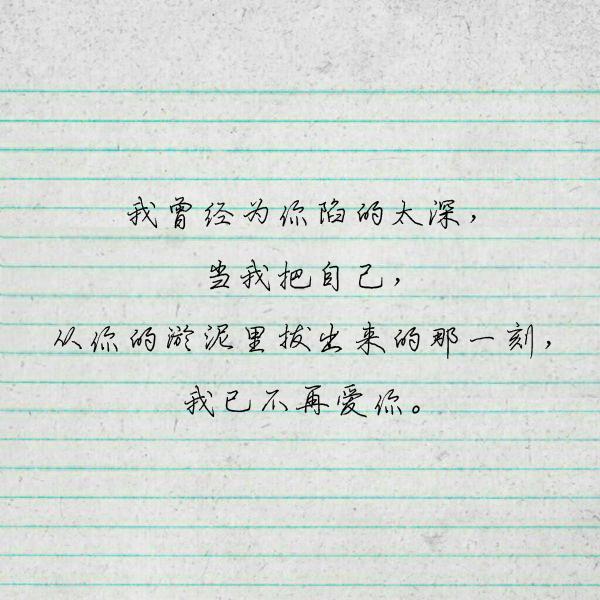 我曾经为你陷的太深，
当我把自己，
从你的淤泥里拔出来的那一刻，
我已不再爱你。